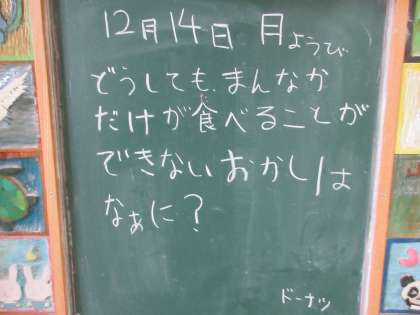 12月14日 月ようび
どうしても、まんなか
だけが食べることが
できないおかしは
なぁに？
ドーナツ